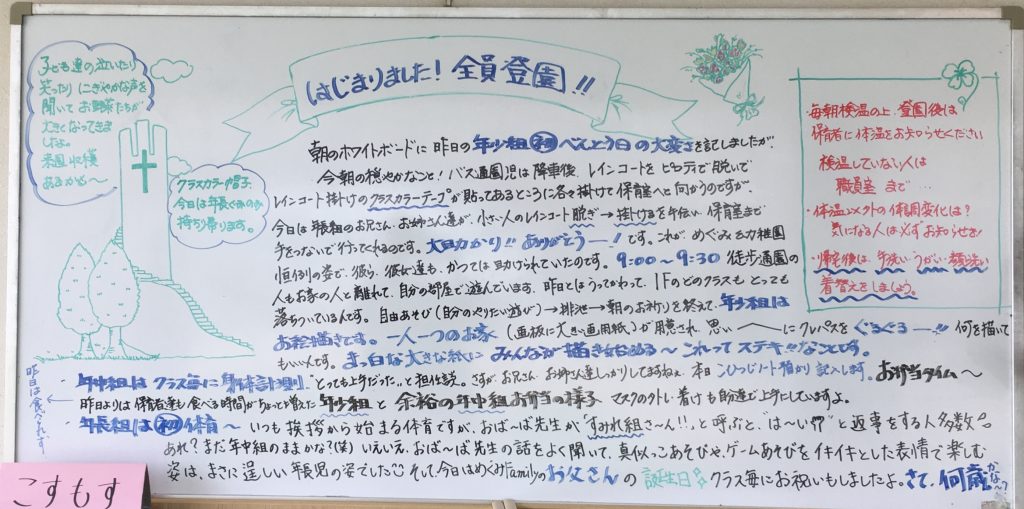 はじまりました! 全員登園!!
子ども達の泣いたり
笑ったり にぎやかな声を
聞いて お野菜たちが
大きくなってきま
したよ。
来週 収穫
あるかも〜
クラスカラー帽子、
今日は年長ぐみのみ
持ち帰ります。
・毎朝検温の上、登園後は
保育者に体温をお知らせください
検温していない人は
職員室まで…
・体温以外の体調変化は?
気になる人は必ずお知らせを!
・帰宅後は、手洗い・うがい・顔洗い
着替えをしましょう。
朝のホワイトボードに 昨日の年少組 初 べんとう日の大変さを記しましたが?
今朝の穏やかなこと! バス通園児は降車後、レインコートを ピロティで脱いで
レインコート掛けのクラスカラーテープが貼ってあるところに各々掛けて保育室へと向かうのですが、
今日は年長組のお兄さん、お姉さん達が、小さい人のレインコート脱ぎ→掛けるを手伝い、保育室まで
手をつないで行ってくれるのです。大助かり!! ありがとうー! です。これがめぐみ幼稚園
恒例の姿で、彼ら、彼女達も、かつては助けられていたのです。9:00〜9:30 徒歩通園の
人もお家の人と離れて、自分の部屋で遊んでいます。昨日とはうってかわって、1Fのどのクラスもとっても
落ちついているんです。自由あそび(自分のやりたい遊び)→排泄→朝のお祈りを終えて、年少組は
お絵描きです。一人一つのお家 (画板に大きい画用紙)が用意され 思い〳〵にクレパスをぐるぐるー!! 何を描いて
もいいんです。まっ白な大きな紙に みんなが描き始める〜 これって ステキ!!なことです。
・年中組は クラス毎に身体計測 "とっても上手だった"と担任談。さすがお兄さん お姉さん達しっかりしてますねぇ。本日 こひつじノート預かり 記入します。お弁当タイム〜
昨日よりは保育者達も食べる時間がちょっと増えた年少組と 余裕の年中組お弁当の様子 マスクの外し・着けも師達で上手にしていますよ。
昨日は食べられず…
・年長組は 初 体育〜 いつも挨拶から始まる体育ですが、おば〜ば先生が "すみれ組さ〜ん!!"と呼ぶと、は〜い!?" と返事をする人多数。
あれ? まだ年中組のままかな?(笑) いえいえ、おば〜ば先生の話をよく聞いて、真似っこあそびや、ゲームあそびをイキイキとした表情で楽しむ
姿は、まさに逞しい年長児の姿でした そして、今日はめぐみfamilyのお父さんの 誕生日 クラス毎にお祝いもしましたよ。さて、何歳かな〜?
こすもす